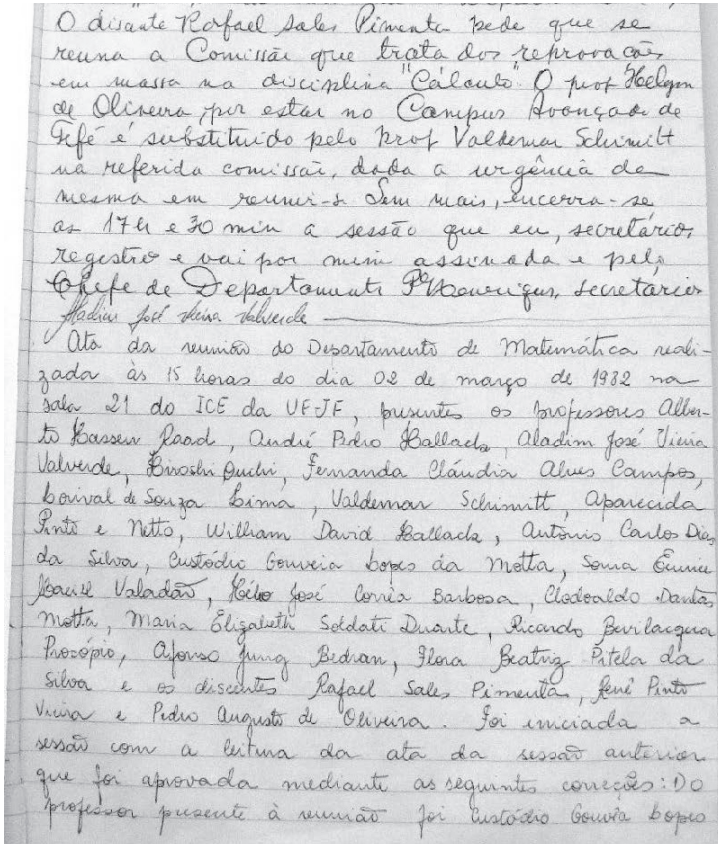 O disante Rafael Sales Pimenta pede que se
reuna a Comissão que trata dos reprovações
em massa na disciplina "Cálculo". O prof Helyon
de Oliveira, por estar no Campus Avançado de
Tefé é substituido pelo prof Valdemar Schimitt
na referida comissão, dada a urgência da
mesma em reunir-se Sem mais, encerra-se
as 17h e 30 min a sessão que eu, secretário,
registro e vai por mim assinada e pelo
Chefe de Departamento secretário
Aladim José Vieira Valverde
Ata da reunião do Departamento de Matemática reali-
zada às 15 horas do dia 02 de março de 1982 na
sala 21 do ICE da UFJF, presentes os professores Alber-
to Hassen Raad, André Pedro Hallack, Aladim José Vieira
Valverde, Hiroshi Ouchi, Fernanda Cláudia Alves Campos,
Lorival de Souza Lima, Valdemar Schimitt, Aparecida
Pinto e Netto, William David Hallack, Antônio Carlos Dias
da Silva, Custódio Gouveia Lopes da Motta, Sonia
Valadão, Hélio José Corrêa Barbosa, Clodoaldo Dantas
Motta, Maria Elizabeth Soldati Duarte, Ricardo Bevilacqua
Procópio, Afonso Jung Bedran, Flora Beatriz Pitela da
Silva e os discentes Rafael Sales Pimenta, René Pinto
Vieira e Pedro Augusto de Oliveira. Foi iniciada a
sessão com a leitura da ata da sessão anterior
que foi aprovada mediante as seguintes correções: Do
professor presente à reunião foi Custódio Gouvêa Lopes